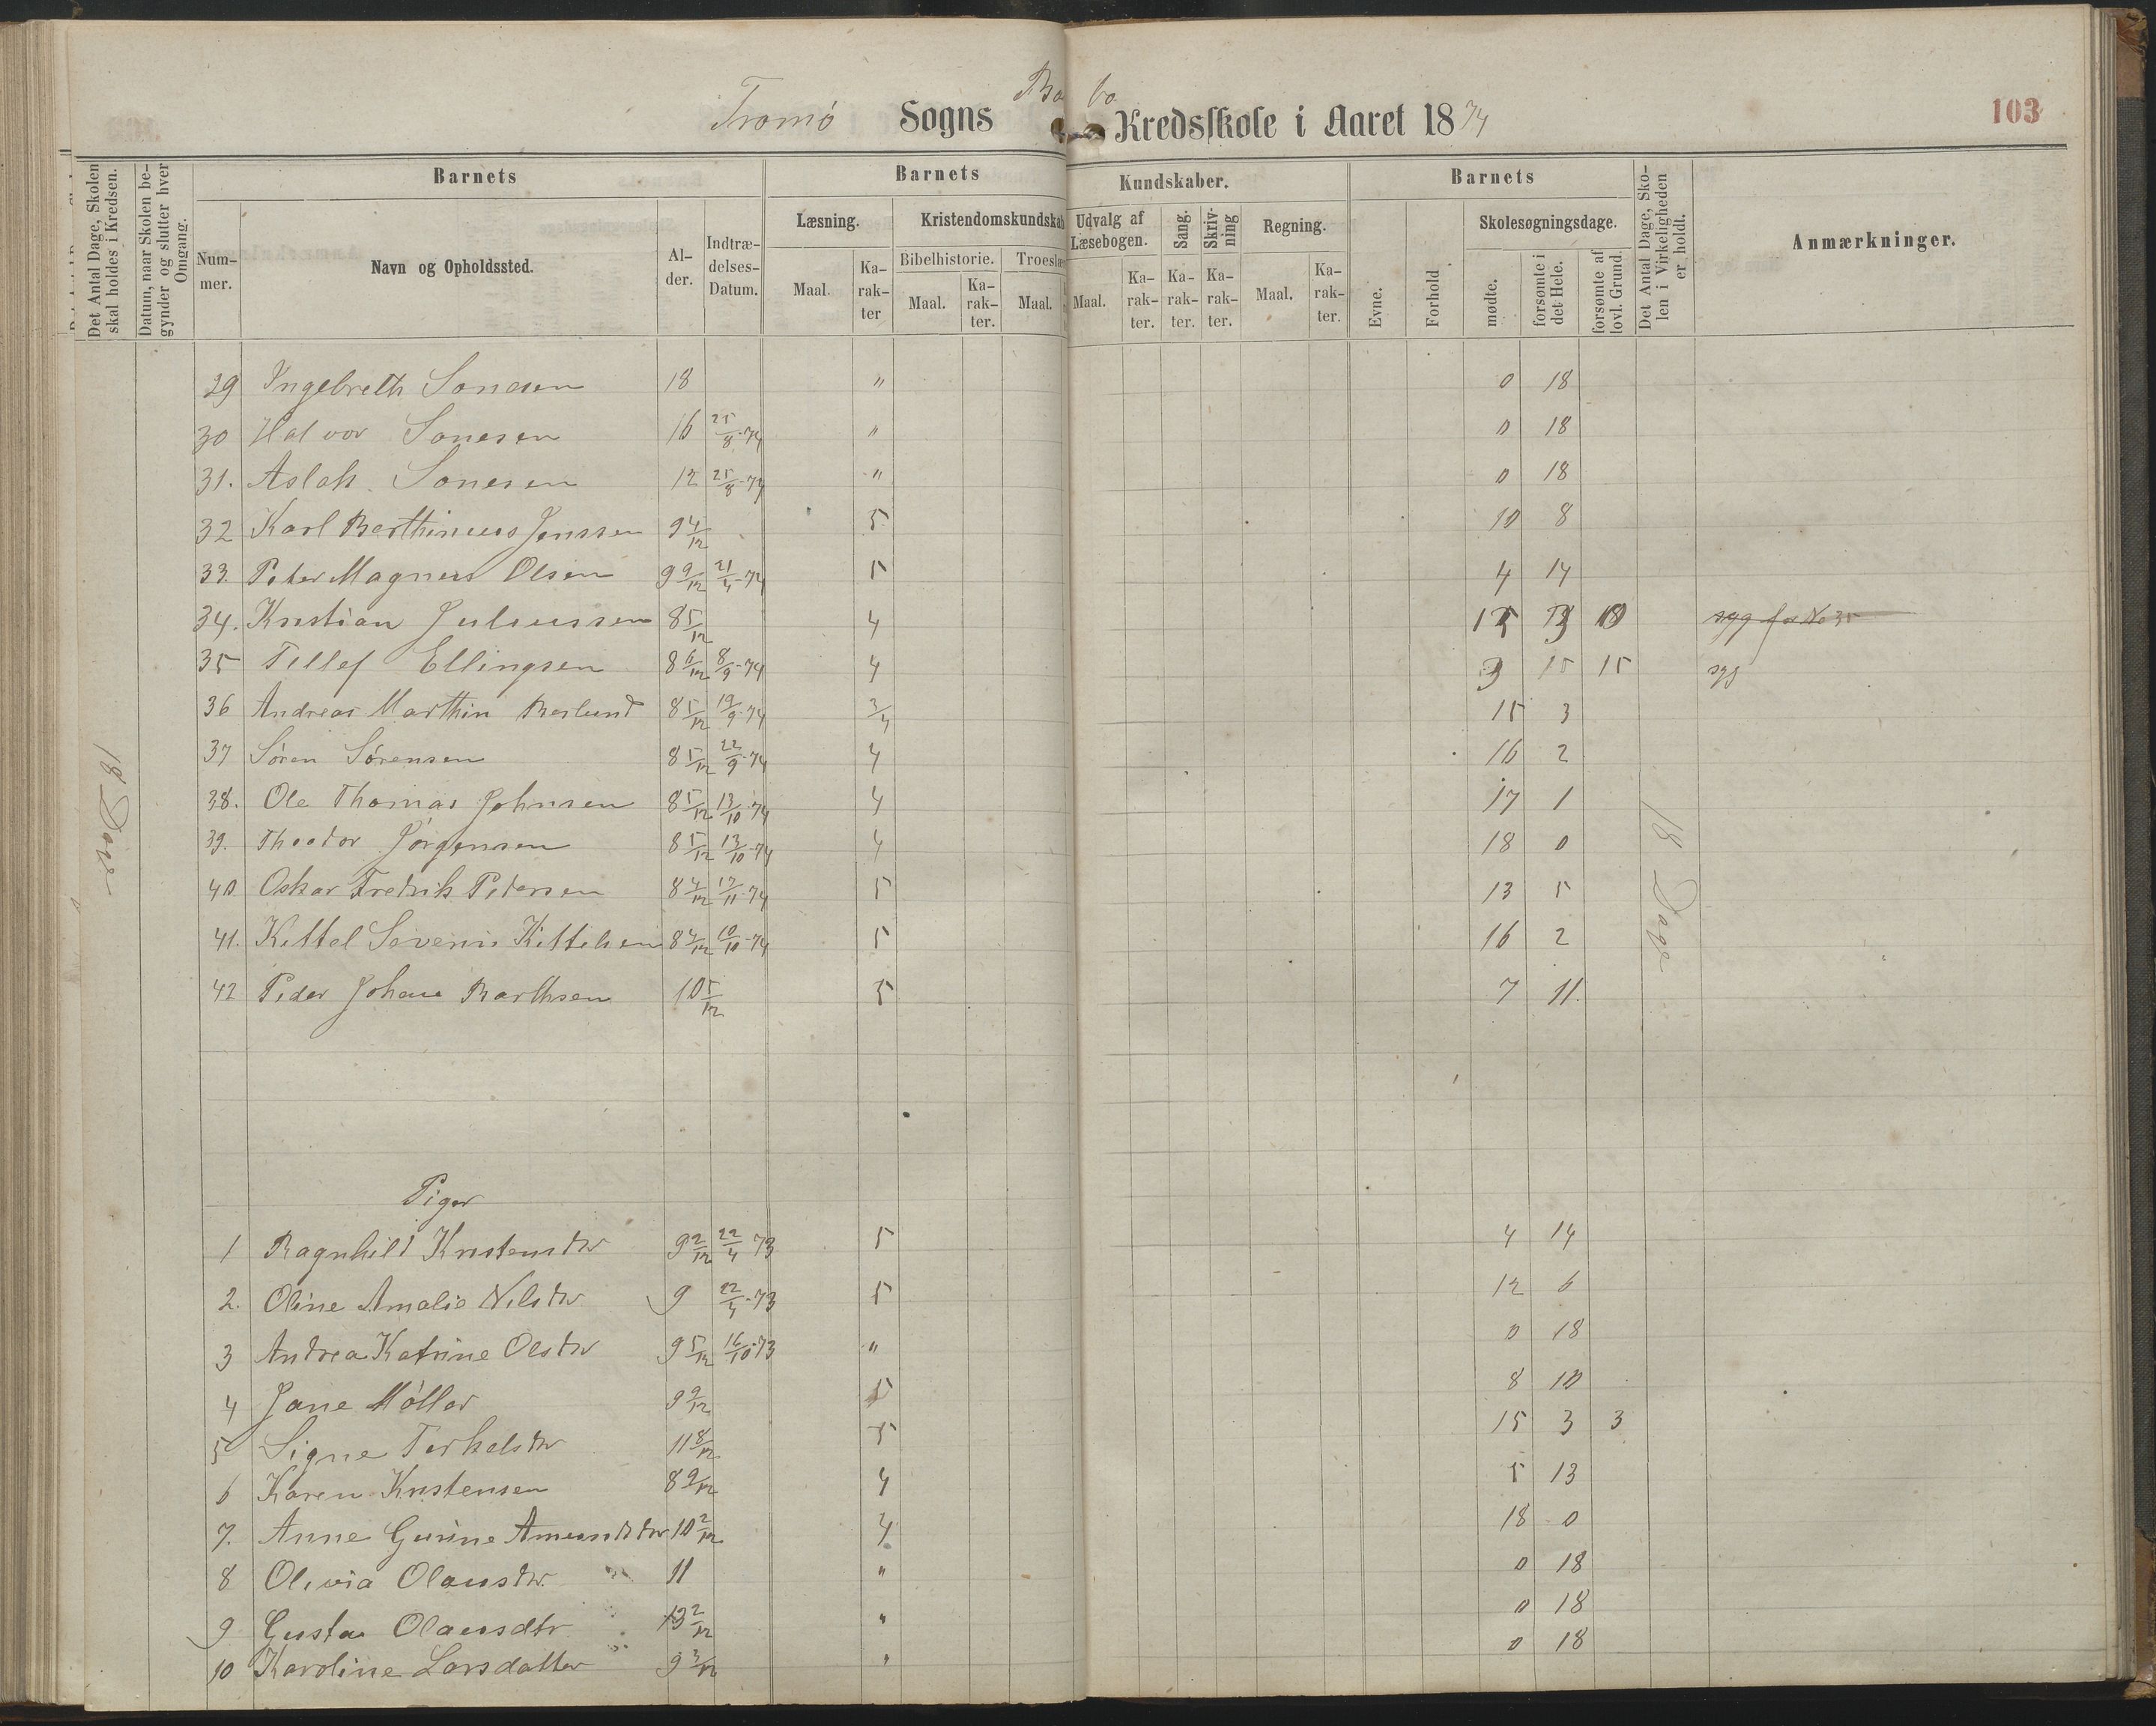 Tromø Sogns Ba bo Kredsskole i Aaret 1874 103
Det Antal Dage, Skolen skal holdes i Kredsen.
Datum, naar Skolen begynder og slutter hver Omgang.
Barnets Barnets Kundskaber. Barnets
Nummer. Navn og Opholdssted. Alder. Indtrædelses-Datum.
Læsning. Kristendomskundskab Udvalg af Læsebogen. Sang. Skrivning Regning.
Bibelhistorie. Troeslære
Maal. Karakter Maal. Karakter. Maal. Maal. Karakter. Karakter. Karakter. Maal. Karakter.
Evne. Forhold Skolesøgningsdage. mødte. forsømte i det Hele. forsømte af lovl. Grund.
Det Antal Dage, Skolen i Virkeligheden er holdt.
Anmærkninger.
29 Ingebreth Sonesen 18 " 0 18
30 Halvor Sonesen 16 25/8-74 " 0 18
31. Aslak Sonesen 12 25/8-74 " 0 18
32 Karl Barthinius Jenssen 9 4/12 5 10 8
33. Peter Magnus Olsen 9 9/12 21/4-74 5 4 14
34. Kristian Juliussen 8 5/12 4 15 3 syg for No 35
35 Tellef Ellingsen 8 6/12 8/9-74 4 3 15 15 syg
36 Andreas Marthin Berlund 8 5/12 19/9-74 3/4 15 3
37 Søren Sørensen 8 5/12 22/9-74 4 16 2
38. Ole Thomas Johnsen 8 5/12 13/10-74 4 17 1
39. Theodor Jørgensen 8 5/12 13/10-74 4 18 0
40 Oskar Fredrik Petersen 8 4/12 17/11-74 5 13 5
41. Kittel Severin Kittelsen 8 4/12 10/10-74 5 16 2
42 Peder Johan Barthsen 10 5/12 5 7 11.
18 Dage
18 Dage
Piger
1 Ragnhild Kristensdtr 9 2/12 22/4 73 5 4 14
2. Oline Amalie Nilsdtr 9 22/4-73 5 12 6
3 Andrea Katrine Olsdtr 9 5/12 16/10-73 " 0 18
4 Jane Møller 9 9/12 5 8 10
5 Signe Terkelsdtr 11 8/12 5 15 3 3
6 Karen Kristensen 8 9/12 4 5 13
7. Anne Gurine Amundsdtr 10 2/12 4 18 0
8 Olivia Olausdtr. 11 " 0 18
9 Gusta Olausdtr 13 2/12 " 0 18
10 Karoline Larsdatter 9 3/12 " 0 18